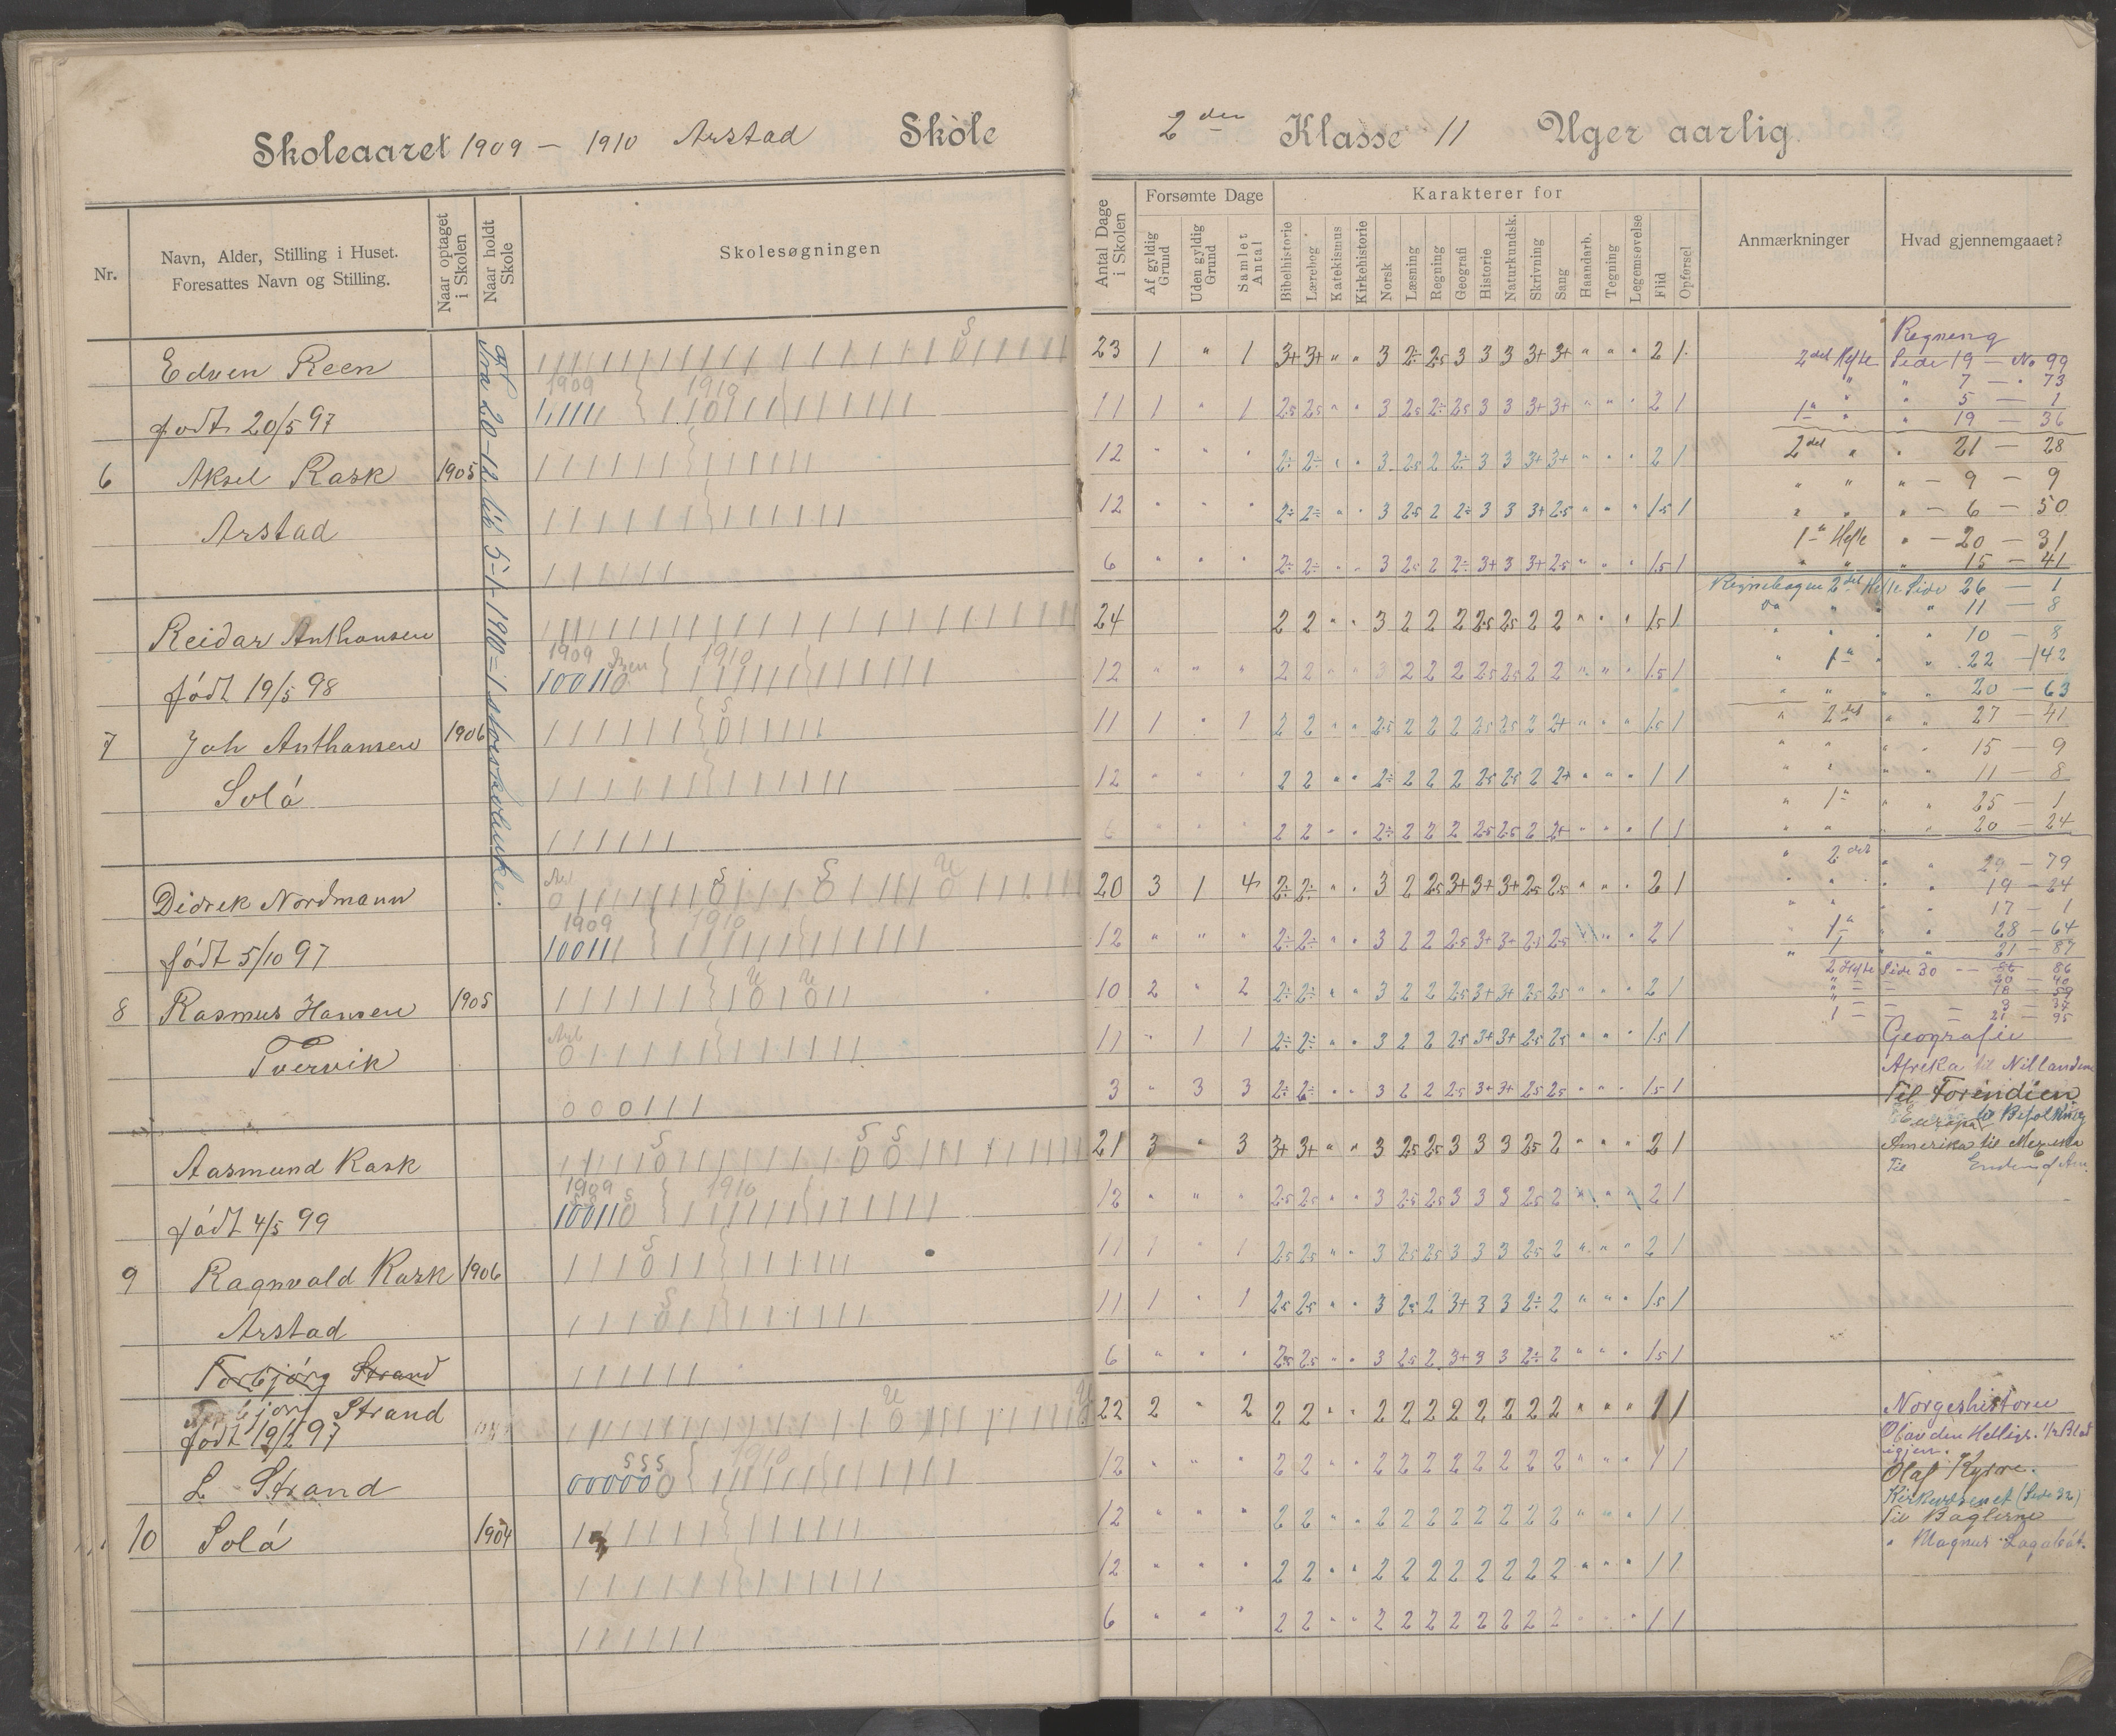 Skoleaaret 1909 - 1910 Arstad Skole
2den Klasse 11 Uger aarlig.
Nr.
Navn, Alder, Stilling i Huset.
Foresattes Navn og Stilling.
Naar optaget i Skolen
Naar holdt Skole
Skolesøgningen
Antal Dage i Skolen
Forsømte Dage
Af gyldig Grund
Uden gyldig Grund
Samlet Antal
Karakterer for
Bibelhistorie
Lærebog
Katekismus
Kirkehistorie
Norsk
Læsning
Regning
Geografi
Historie
Naturkundsk.
Skrivning
Sang
Haandarb.
Tegning
Legemsøvelse
Flid
Opførsel
Anmærkninger
Hvad gjennemgaaet?
Edven Reen
født 20/5 97
6 Aksel Rask 1905
Arstad
1909 1910
23 1 " 1 3+ 3+ " " 3 2÷ 2.5 3 3 3 3+ 3+ " " " 2 1
11 1 " 1 2.5 2.5 " " 3 2.5 2÷ 2.5 3 3 3+ 3+ " " " 2 1
12 " " " 2÷ 2÷ " " 3 2.5 2 2÷ 3 3 3+ 3+ " " " 2 1
12 " " " 2÷ 2÷ " " 3 2.5 2 2÷ 3 3 3+ 2.5 " " " 1.5 1
6 " " " 2÷ 2÷ " " 3 2.5 2 2÷ 3+ 3 3+ 2.5 " " " 1.5 1
Regning
2det Hefte Side 19 - No 99
" " 7 - " 73
" " 5 - 1
1ste " " 19 - 36
2det " " 21 - 28
" " " - 9 - 9
" " " - 6 - 50
1ste Hefte " - 20 - 31
" " 15 - 41
Reidar Anthonsen
født 19/5 98
7 Joh Anthonsen 1906
Solå
1909 1910
24 2 2 " " 3 2 2 2 2.5 2.5 2 2 " " " 1.5 1
12 " " " 2 2 " " 3 2 2 2 2.5 2.5 2 2 " " " 1.5 1
11 1 " 1 2 2 " " 2.5 2 2 2 2.5 2.5 2 2+ " " " 1.5 1
12 " " " 2 2 " " 2÷ 2 2 2 2.5 2.5 2 2+ " " " 1 1
6 " " " 2 2 " " 2÷ 2 2 2 2.5 2.5 2 2+ " " " 1 1
Regnebogen 2det Hefte Side 26 - 1
" " 11 - 8
" " 10 - 8
" 1ste " " 22 - 142
" " " " 20 - 63
" 2det " " 27 - 41
" " " " 15 - 9
" " " " 11 - 8
" 1ste " " 25 - 1
" " " " 20 - 24
Didrek Nordmann
født 5/10 97
8 Rasmus Hansen 1905
Tvervik
1909 1910
20 3 1 4 2÷ 2÷ " " 3 2 2.5 3+ 3+ 3+ 2.5 2.5 " " " 2 1
12 " " " 2÷ 2÷ " " 3 2 2 2.5 3+ 3+ 2.5 2.5 " " " 2 1
10 2 " 2 2÷ 2÷ " " 3 2 2 2.5 3+ 3+ 2.5 2.5 " " " 2 1
11 " 1 1 2÷ 2÷ " " 3 2 2 2.5 3+ 3+ 2.5 2.5 " " " 1.5 1
3 " 3 3 2÷ 2÷ " " 3 2 2 2.5 3+ 3+ 2.5 2.5 " " " 1.5 1
" 2det " " 29 - 79
" " " 19 - 24
" " " 17 - 1
1ste " 28 - 64
" 1 " " 21 - 87
2 Hefte Side 30 - 86
Geografi
Afrika til Nillandene
Til Forindien
Europa til Befolkning
Amerika til Mexiko
Til
Aasmund Rask
født 4/5 99
9 Ragnvald Rask 1906
Arstad
1909 1910
21 3 " 3 3+ 3+ " " 3 2.5 2.5 3 3 3 2.5 2 " " " 2 1
12 " " " 2.5 2.5 " " 3 2.5 2.5 3 3 3 2.5 2 " " " 2 1
11 1 " 1 2.5 2.5 " " 3 2.5 2.5 3 3 3 2.5 2 " " " 2 1
11 1 " 1 2.5 2.5 " " 3 2.5 2 3+ 3 3 2÷ 2 " " " 1.5 1
6 " " " 2.5 2.5 " " 3 2.5 2 3+ 3 3 2÷ 2 " " " 1.5 1
Torbjørg Strand
Torbjørg Strand
født 19/2 97
L Strand
10 Solå 1904
1910
22 2 " 2 2 2 " " 2 2 2 2 2 2 2 2 " " " 1 1
12 " " " 2 2 " " 2 2 2 2 2 2 2 2 " " " 1 1
12 " " " 2 2 " " 2 2 2 2 2 2 2 2 " " " 1 1
12 " " " 2 2 " " 2 2 2 2 2 2 2 2 " " " 1 1
6 " " " 2 2 " " 2 2 2 2 2 2 2 2 " " " 1 1
Norgeshistorie
Olav den Hellige.
igjen.
Olaf Kyrre.
(Side 32)
Til Baglerne
" Magnus Lagabøt.
Fra 20-12 til 5-1-1910 = 1ste